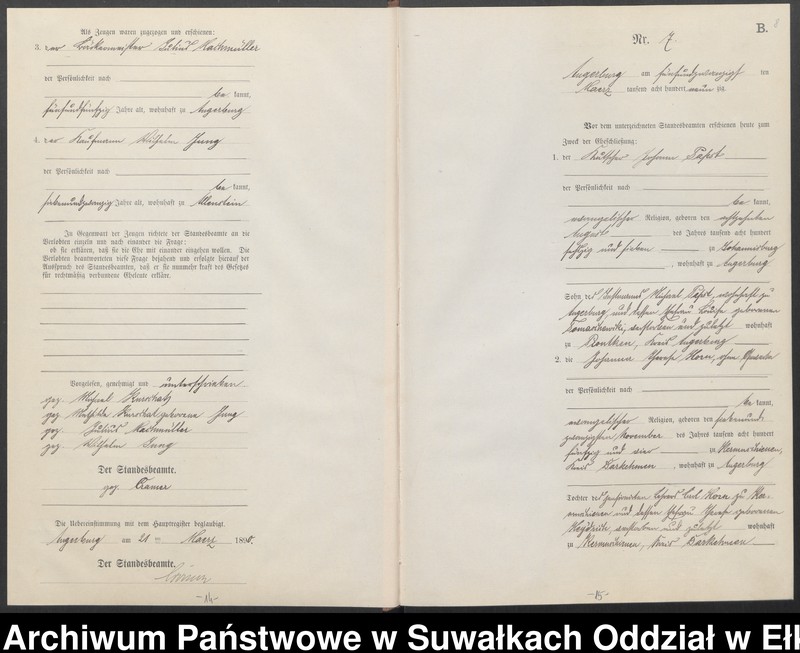 Als Zeugen waren zugezogen und erschienen:
3. der Bäckermeister Julius Kachmüller
der Persönlichkeit nach
be kannt,
fünfundfünfzig Jahre alt, wohnhaft zu Angerburg
4. der Kaufmann Wilhelm Jung
der Persönlichkeit nach
be kannt,
siebenundzwanzig Jahre alt, wohnhaft zu Allenstein
In Gegenwart der Zeugen richtete der Standesbeamte an die
Verlobten einzeln und nach einander die Frage:
ob sie erklären, daß sie die Ehe mit einander eingehen wollen. Die
Verlobten beantworteten diese Frage bejahend und erfolgte hierauf der
Ausspruch des Standesbeamten, daß er sie nunmehr kraft des Gesetzes
für rechtmäßig verbundene Eheleute erkläre.
Vorgelesen, genehmigt und unterschrieben
gez. Michael Kurschat
gez. Mathilde Kurschat geborene Jung
gez. Julius Kachmüller
gez. Wilhelm Jung
Der Standesbeamte.
gez. Cramer
Die Uebereinstimmung mit dem Hauptregister beglaubigt.
Angerburg am 21 ten Maerz 1890.
Der Standesbeamte.
Cramer
-14-
B.
8
Nr. 7.
Angerburg am fünfundzwanzigsten
Maerz tausend acht hundert neun zig
Vor dem unterzeichneten Standesbeamten erschienen heute zum
Zweck der Eheschließung:
1. der Kutscher Johann Papst
der Persönlichkeit nach
be kannt,
evangelischer Religion, geboren den achtzehnten
August des Jahres tausend acht hundert
fünfzig und sieben zu Johannisburg
, wohnhaft zu Angerburg
Sohn des Michael Papst, wohnhaft zu
Angerburg, und dessen Ehefrau Louise geborenen
verstorben und zuletzt wohnhaft
zu Kreis Angerburg
2. die Johanna Horn, ohne Gewerbe
der Persönlichkeit nach
be kannt,
evangelischer Religion, geboren den siebenund-
zwanzigsten November des Jahres tausend acht hundert
fünfzig und vier zu
Kreis Darkehmen, wohnhaft zu Angerburg
Tochter des Carl Horn zu
und dessen Ehefrau geborenen
verstorben und zuletzt wohnhaft
zu Kreis Darkehmen
-15-
Archiwum Państwowe w Suwałkach Oddział w Ełk